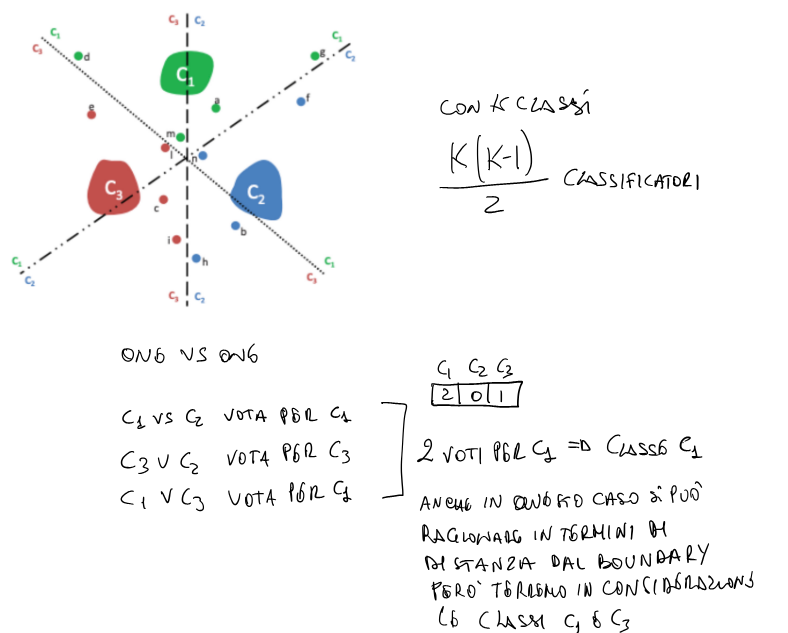 C3 C2
C1 C1
C3 d g C2
C1
e a f
m
l n
C3 C2
c
b
i
C1 h C1
C2 C3
C3 C2
CON K CLASSI
K(K-1)
2
CLASSIFICATORI
ONE VS ONE
C1 VS C2 VOTA PER C1
C3 V C2 VOTA PER C3
C1 V C3 VOTA PER C1
C1 C2 C3
2 0 1
2 VOTI PER C1 => CLASSE C1
ANCHE IN QUESTO CASO SI PUÒ
RAGIONARE IN TERMINI DI
DISTANZA DAL BOUNDARY
PERÒ TERREMO IN CONSIDERAZIONE
LE CLASSI C1 E C3